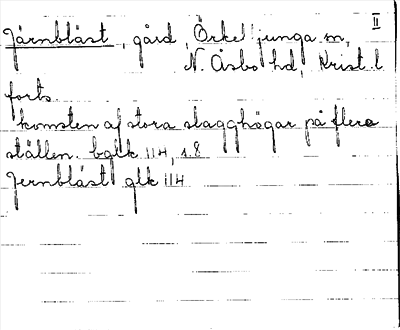 Järnblåst, gård, Örkelljunga sn, II
N. Åsbo hd, Krist. l
forts.
komsten af stora slagghögar på flere
ställen. bglk 114, s. 8
Jernblåst glk 114